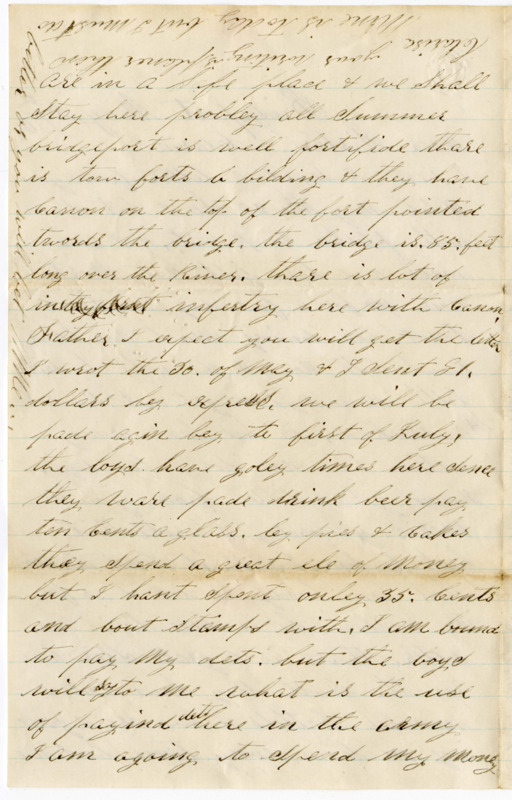 are in a safe place & we shall
stay here probley all Summer
bridgeport is well fortifide thare
is tow forts b bilding & they have
Canon on the top of the fort pointed
twords the bridge. the bridge is 85. feet
long over the River. thare is lot of
infertry here with Canon,
Father I expect you will get the letter
I wrot the 30. of May & I sent 81.
dollars by express. we will be
pade agin bey to first of July,
the boys have goley times here sence
they ware pade drink beer pay
ten Cents a glass. by pies & Cakes
they spend a great ele of money
but I hant spent onley 35. Cents
and bout stamps with. I am bound
to pay my dets. but the boys
will say to me what is the use
of payind dets here in the army
I am agoing to spend my money
Mine is to day but I must
your writing is plainer than